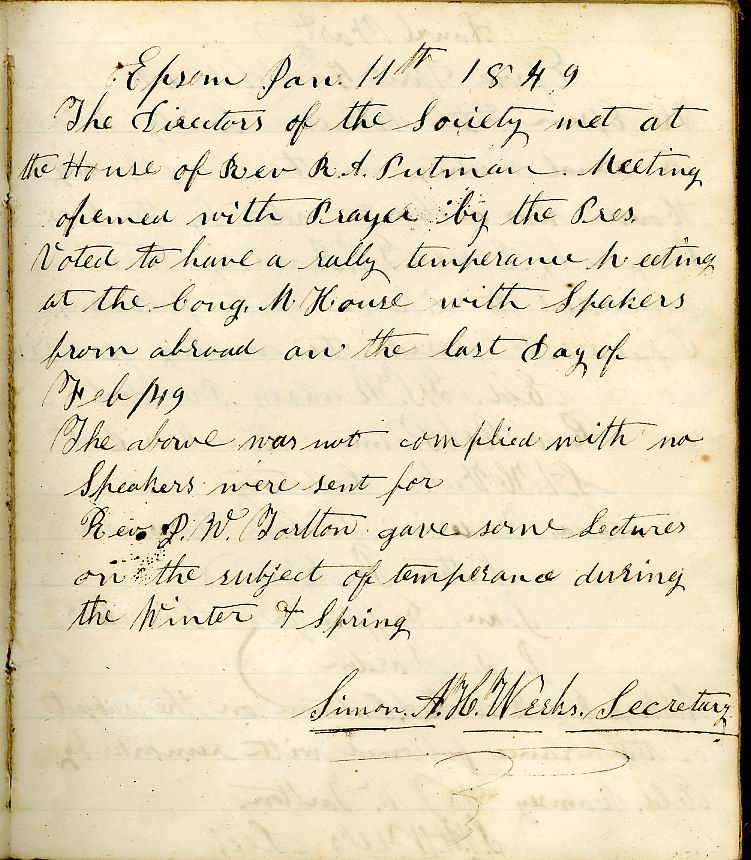 Epsom Jan. 11th 1849
The Directors of the Society met at
the House of Rev R. A. Putman. Meeting
opened with Prayer by the Pres.
Voted to have a rally temperance Meeting
at the Cong. M House with Spakers
from abroad on the last Day of
Feb /49
The above was not complied with no
Speakers were sent for
Rev. J. W. Tarlton gave some Lectures
on the subject of temperance during
the Winter & Spring
Simon. A. H. Weeks. Secretary